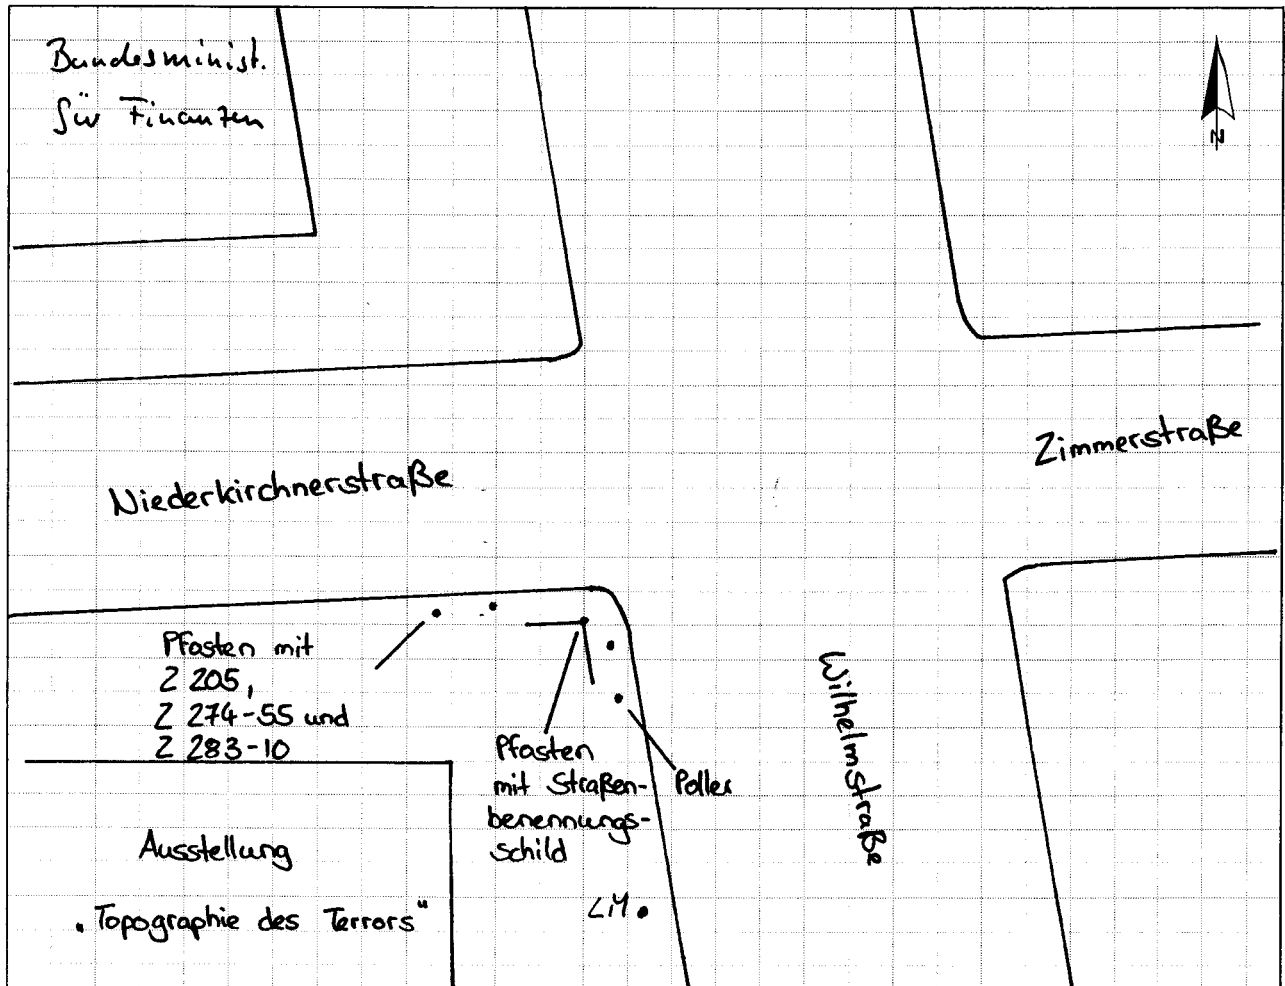 Bundesminist.
für Finanzen
N
Zimmerstraße
Niederkirchnerstraße
Pfosten mit
Z 205,
Z 274-55 und
Z 283-10
Pfosten
mit Straßen-
benennungs-
schild
Poller
Wilhelmstraße
Ausstellung
"Topographie des Terrors"
LM